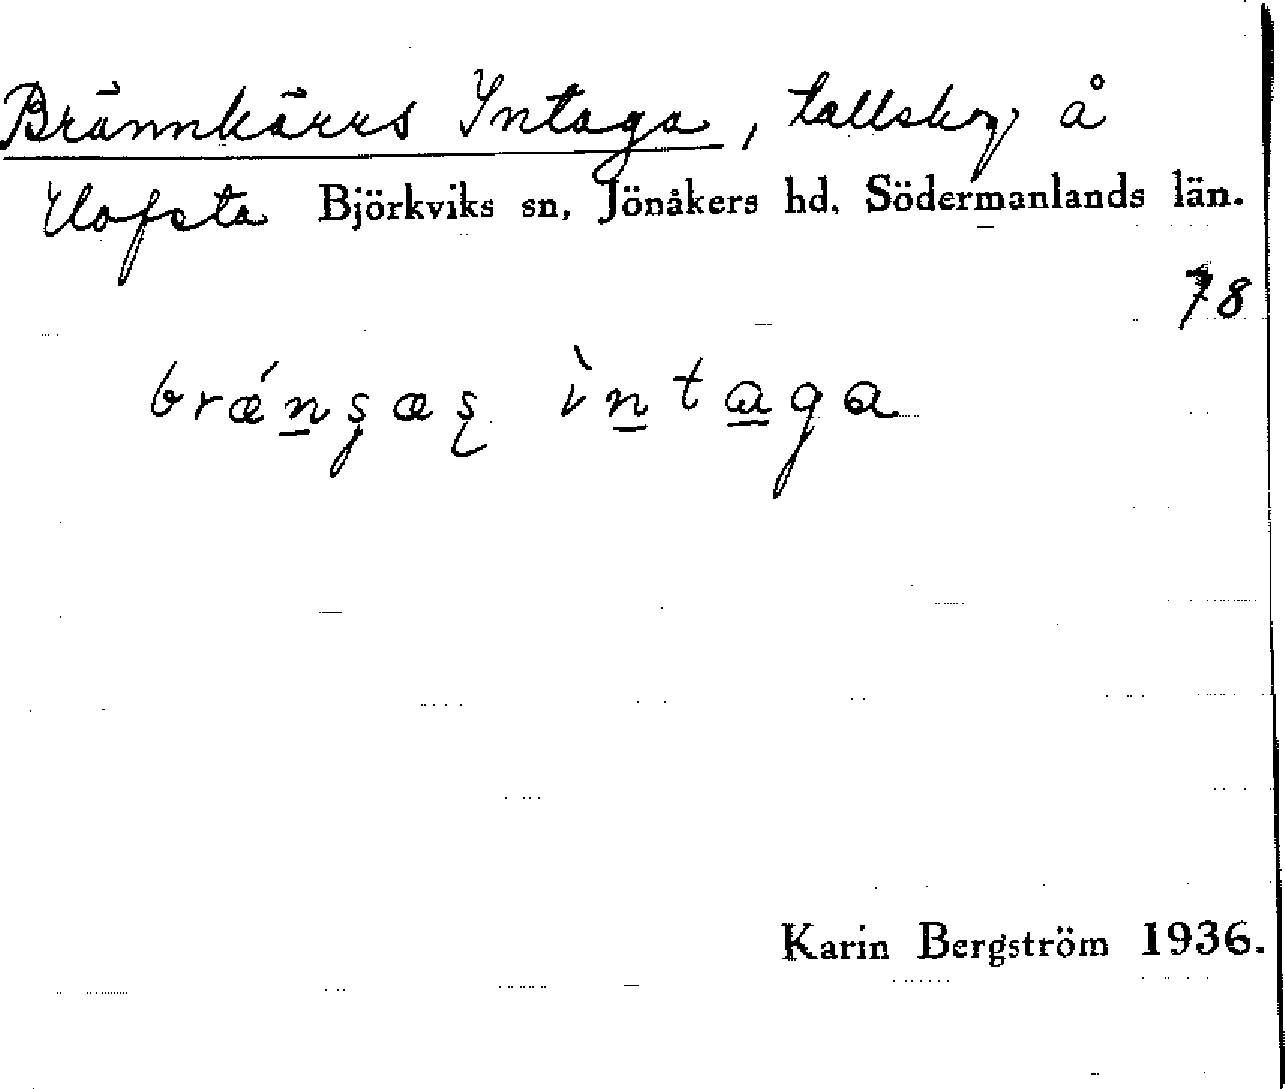 Brännkärrs Intaga, tallskog å
Ulofsta Björkviks sn, Jönåkers hd, Södermanlands län.
78
Karin Bergström 1936.